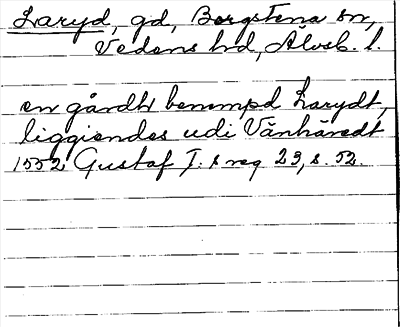 Laryd, gd, Borgstena sn,
Vedens hd, Älvsb. l.
en gårdh benempd Larydt,
liggiendes udi Vånhäredt
1552 Gustaf I:s reg 23, s. 52.